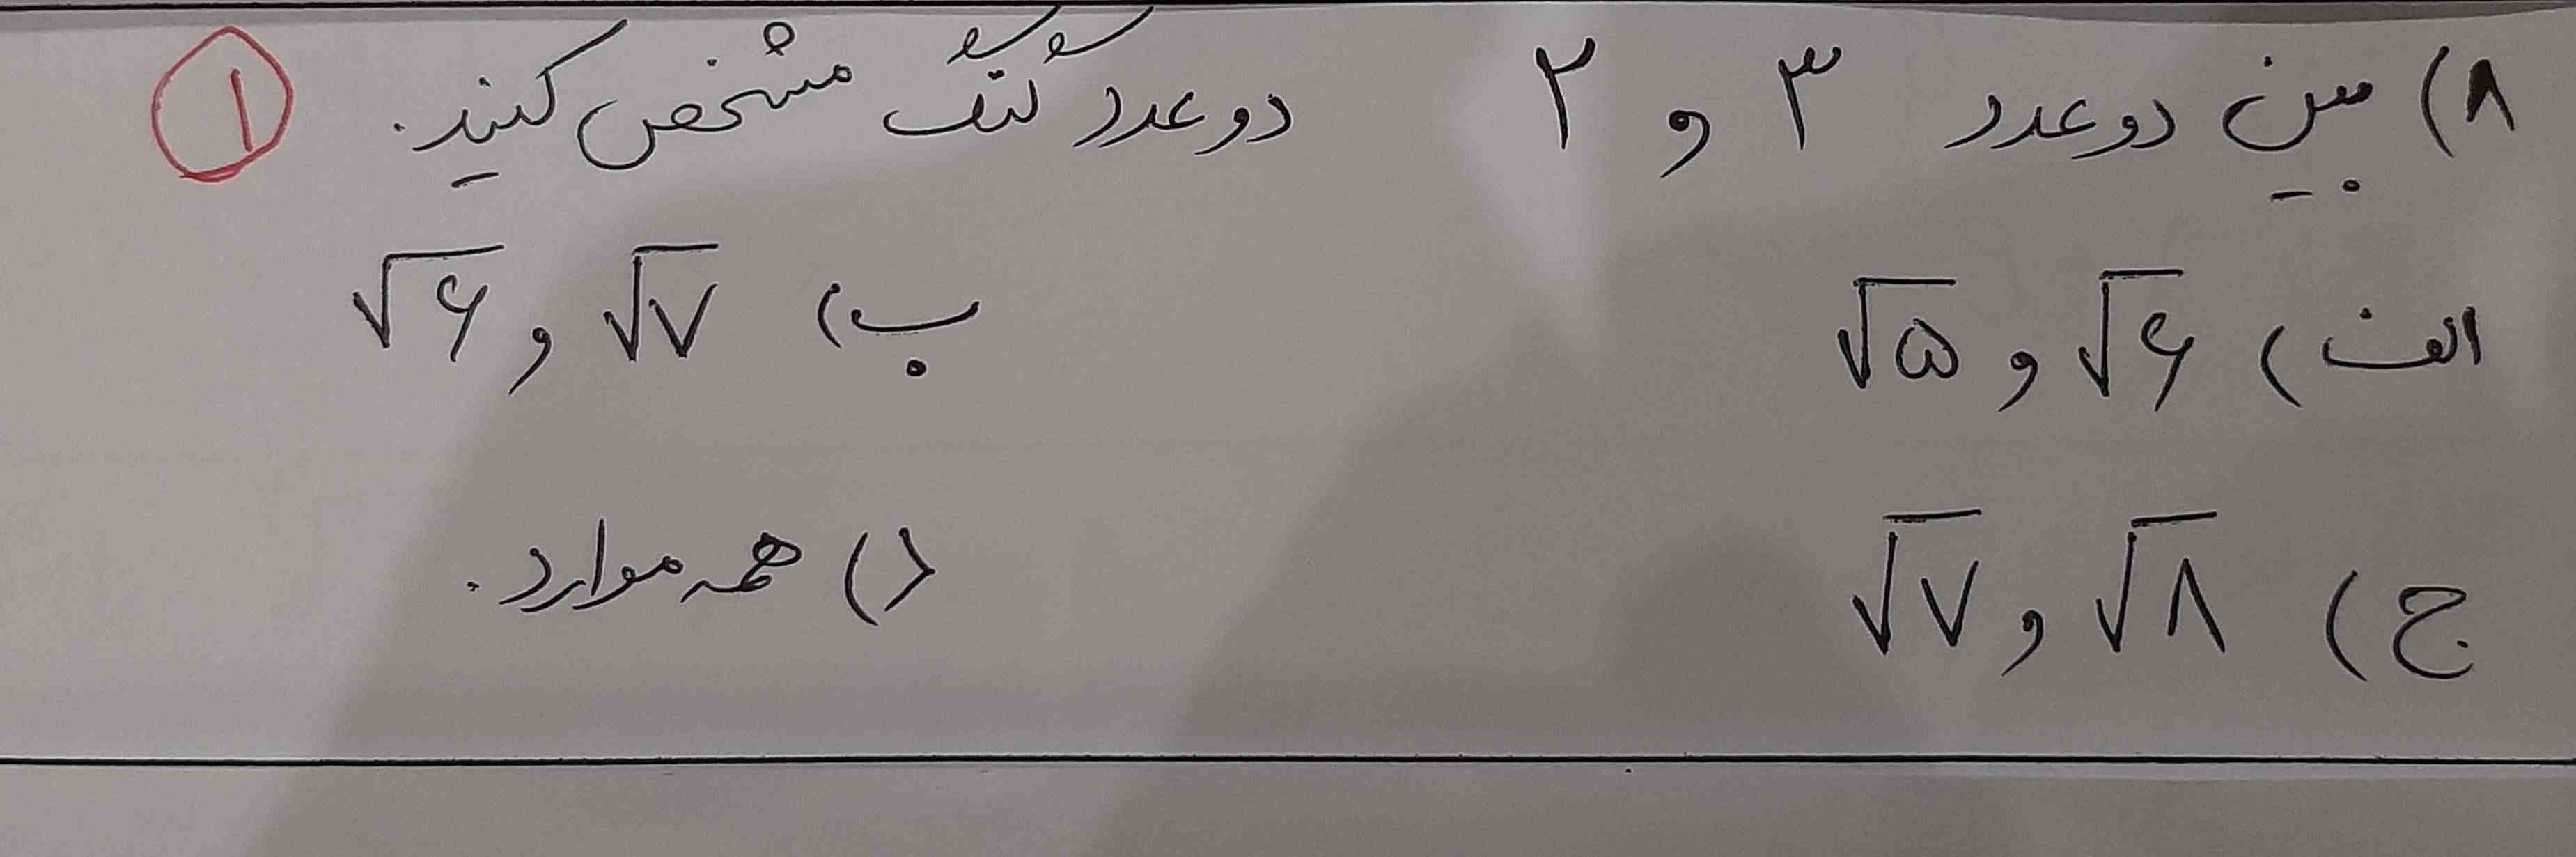 ۸) بین دو عدد ۳ و ۲ دو عدد گنگ مشخص کنید. ۱
الف) √۶ و √۵ ب) √۷ و √۶
ج) √۸ و √۷ د) همه موارد.